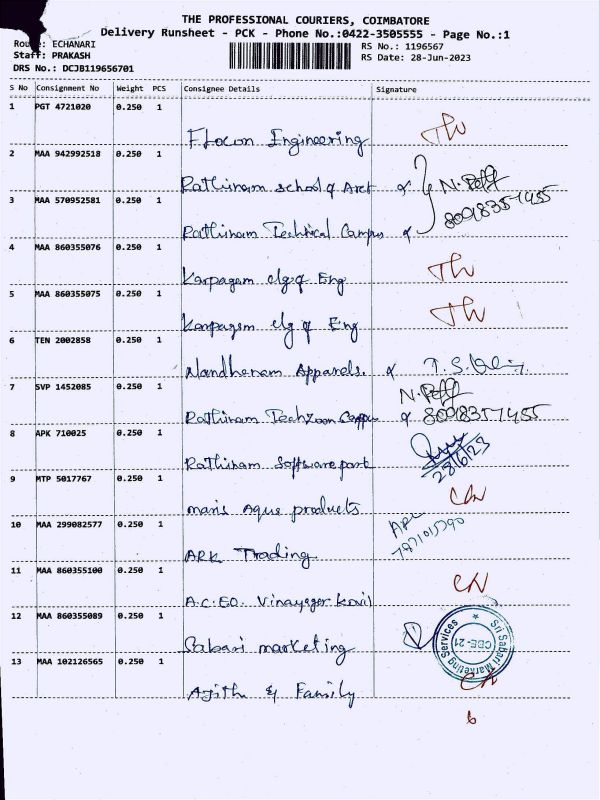 THE PROFESSIONAL COURIERS, COIMBATORE
Delivery Runsheet - PCK - Phone No.:0422-3505555 - Page No.:1
Route: ECHANARI
RS No.: 1196567
Staff: PRAKASH
RS Date: 28-Jun-2023
DRS No.: DCJB119656701
S No Consignment No Weight PCS Consignee Details Signature
1 PGT 4721020 0.250 1
Flocon Engineering
2 MAA 942992518 0.250 1
Rathinam school of Arct
3 MAA 570952581 0.250 1
8098357455
Rathinam Technical Campus
4 MAA 860355076 0.250 1
Karpagam clg of Eng
5 MAA 860355075 0.250 1
Karpagam clg of Eng
6 TEN 2002858 0.250 1
Nandhanam Apparels.
7 SVP 1452085 0.250 1
Rathinam Techzoon Campus 8098357455
8 APK 710025 0.250 1
Rathinam Software park
28/6/23
9 MTP 5017767 0.250 1
maris Aqua products
10 MAA 299082577 0.250 1
ARK Trading
11 MAA 860355100 0.250 1
A.C.EO. Vinayagar Kovil
12 MAA 860355089 0.250 1
Sabari marketing
Sri Sabari Marketing Services
CBE-21
13 MAA 102126565 0.250 1
Ajith & Family
6